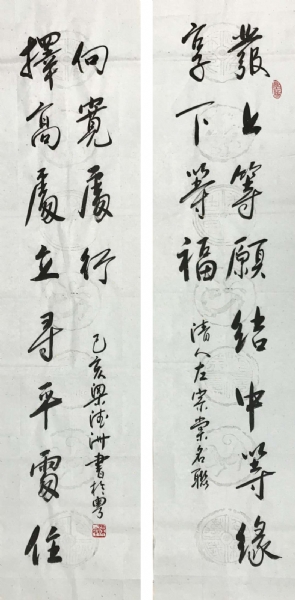 發上等願結中等緣
享下等福
清人左宗棠名聯
擇高處立尋平處住
向寬處行
己亥梁洲書於粵